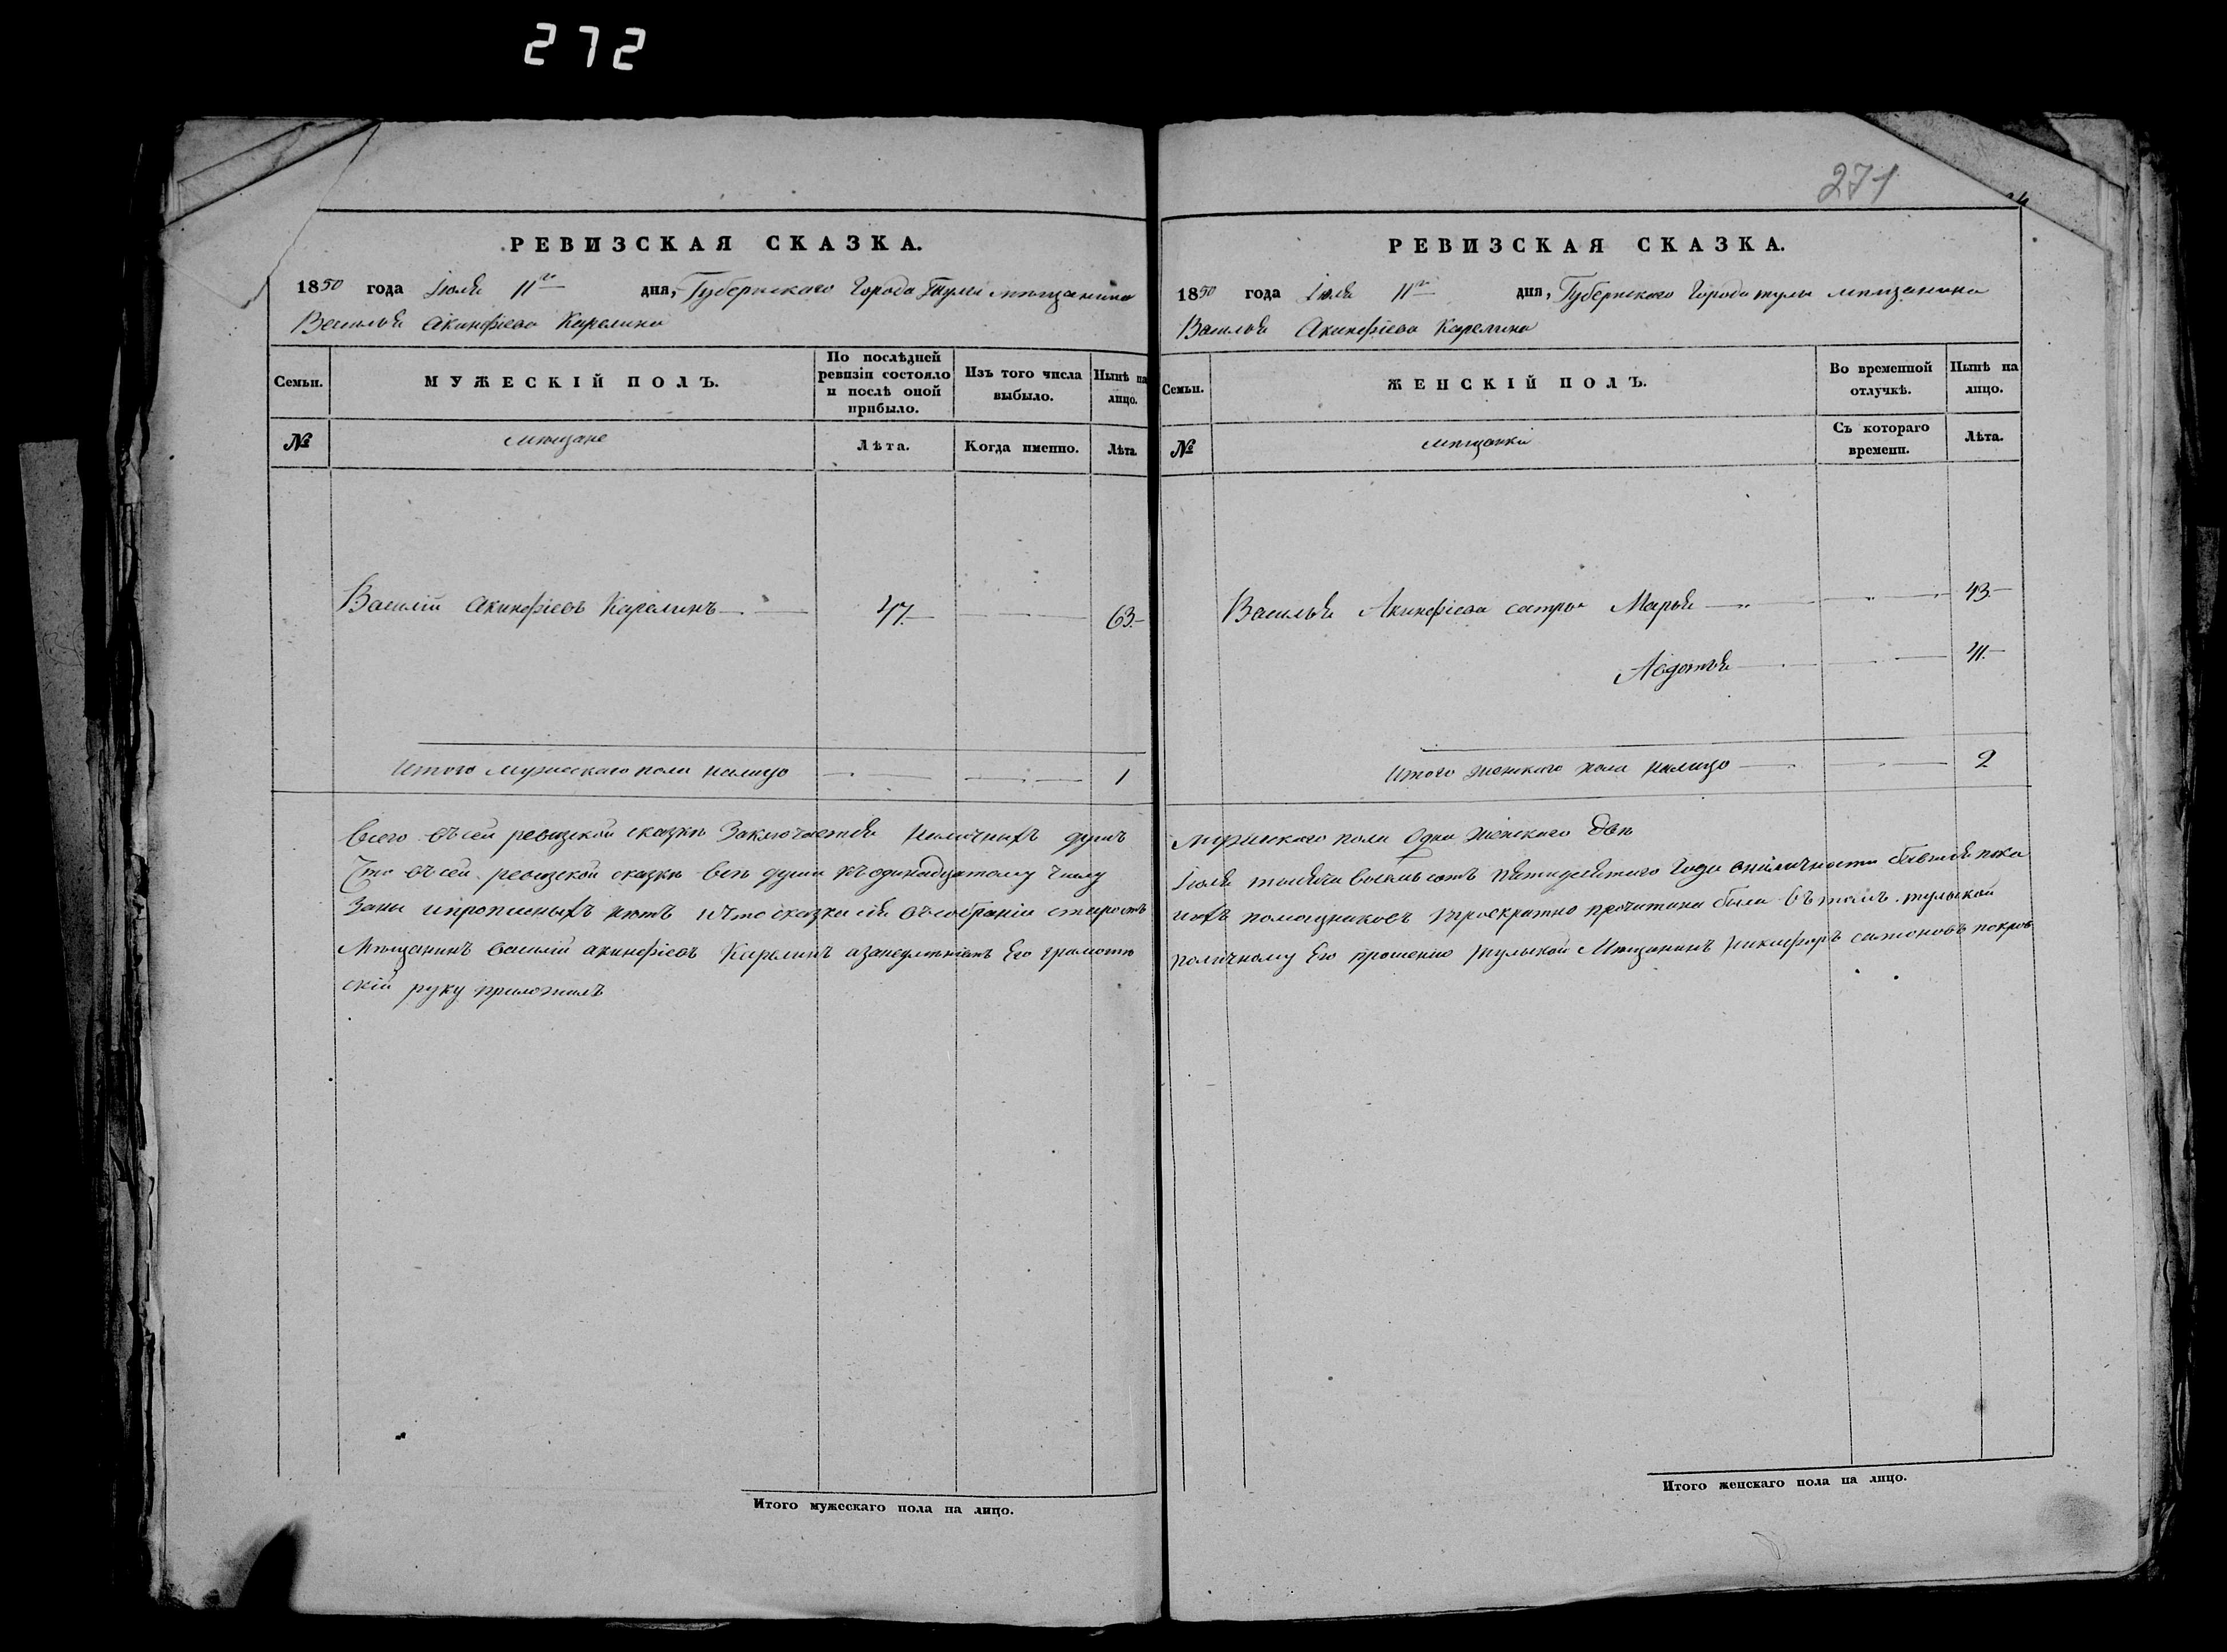 272
271
РЕВИЗСКАЯ СКАЗКА.
1850 года Іюля 11го дня, Губернскаго Города Тулы мѣщанина
Василья Акинфіева Карелина
Семьи.
МУЖЕСКІЙ ПОЛЪ.
По послѣдней ревизіи состояло и послѣ оной прибыло.
Изъ того числа выбыло.
Нынѣ на лицо.
№
мѣщане
Лѣта.
Когда именно.
Лѣта.
Василій Акинфіевъ Карелинъ 47. 63.
Итого мужескаго пола налицо 1
Всего въ сей ревизской сказкѣ Заключается наличныхъ душъ
Что въ сей ревизской сказкѣ всѣ души къ одинадцатому Числу
Заны и прописныхъ нѣтъ и Что сказка сія въ собраніи старостъ
Мѣщанинъ василій акинфіевъ Карелинъ а занеумѣніемъ Его грамотѣ
скій руку приложилъ
Итого мужескаго пола на лицо.
РЕВИЗСКАЯ СКАЗКА.
1850 года Іюля 11го дня, Губернскаго Города тулы мѣщанина
Василья Акинфіева Карелина
Семьи.
ЖЕНСКІЙ ПОЛЪ.
Во временной отлучкѣ.
Нынѣ на лицо.
№
мѣщанки
Съ котораго времени.
Лѣта.
Василья Акинфіева сестры Марья 43.
Авдотья 41.
Итого женскаго пола налицо 2
мужескаго пола Одна женскаго двѣ
Іюля тысяча восемьсотъ пятидесятаго Года въ наличности бывшія пока
ихъ помощниковъ троекратно прочитана была въ томъ тульской
поличному Его прошенію тульской Мѣщанинъ никифоръ покров
Итого женскаго пола на лицо.